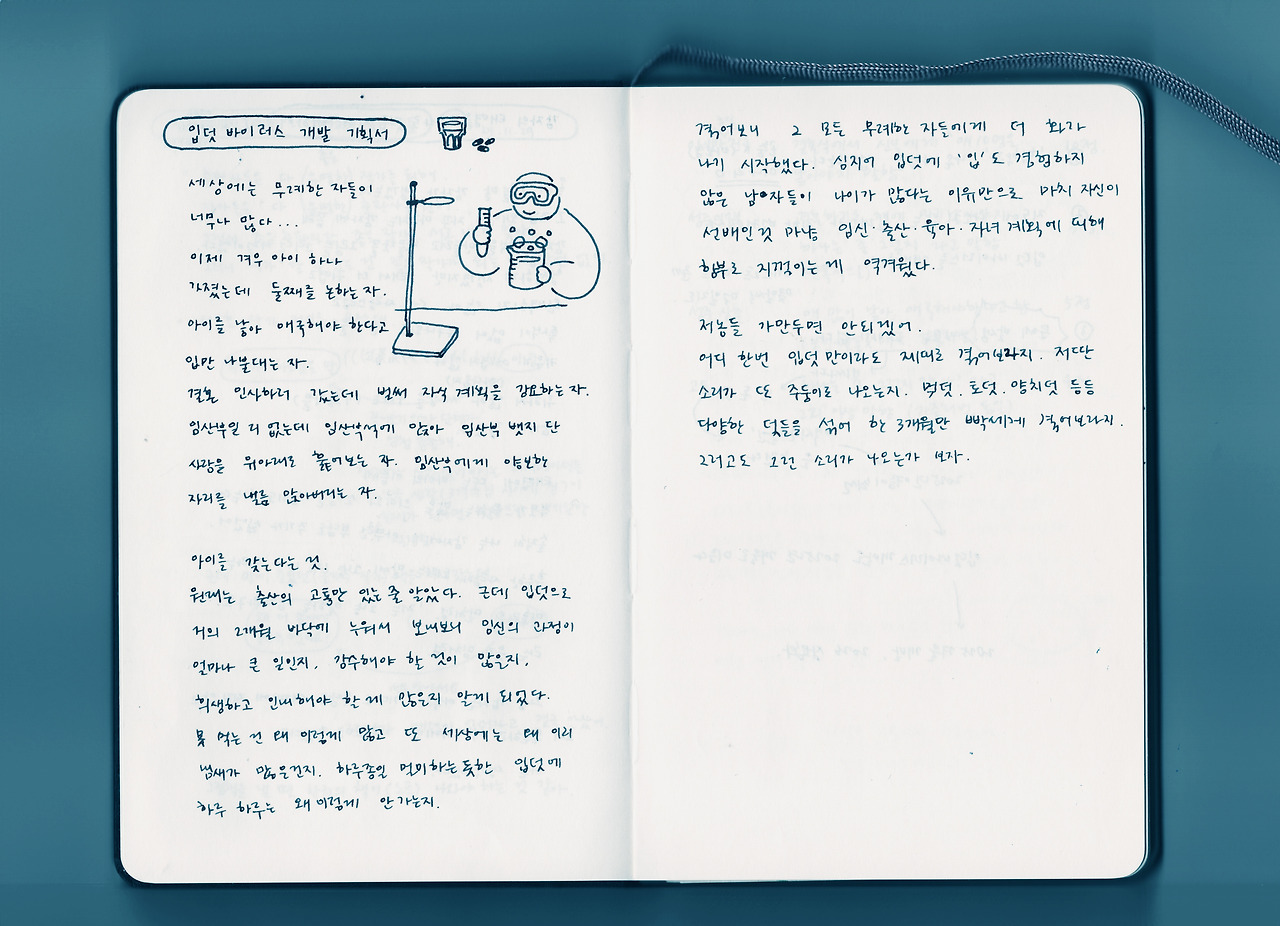 입덧 바이러스 개발 기획서
세상에는 무례한 자들이
너무나 많다...
이제 겨우 아이 하나
가졌는데 둘째를 논하는 자.
아이를 낳아 애국해야 한다고
입만 나불대는 자.
결혼 인사하러 갔는데 벌써 자식 계획을 강요하는 자.
임산부일 리 없는데 임산부석에 앉아 임산부 뱃지 단
사람을 위아래로 훑어보는 자. 임산부에게 양보한
자리를 낼름 앉아버리는 자.
아이를 갖는다는 것.
원래는 출산의 고통만 있는 줄 알았다. 근데 입덧으로
거의 2개월 바닥에 누워서 보내보니 임신의 과정이
얼마나 큰 일인지, 감수해야 할 것이 많은지,
희생하고 인내해야 할 게 많은지 알게 되었다.
못 먹는 건 왜 이렇게 많고 또 세상에는 왜 이리
냄새가 많은건지. 하루종일 멀미하는듯한 입덧에
하루 하루는 왜 이렇게 안 가는지.
겪어보니 그 모든 무례한 자들에게 더 화가
나기 시작했다. 심지어 입덧에 '입'도 경험하지
않은 남자들이 나이가 많다는 이유만으로 마치 자신이
선배인 것 마냥 임신·출산·육아·자녀 계획에 대해
함부로 지껄이는 게 역겨웠다.
저놈들 가만두면 안되겠어.
어디 한번 입덧만이라도 제대로 겪어보라지. 저딴
소리가 또 주둥이로 나오는지. 먹덧, 토덧, 양치덧 등등
다양한 덧들을 섞어 한 3개월만 빡세게 겪어보라지.
그러고도 그런 소리가 나오는가 보자.